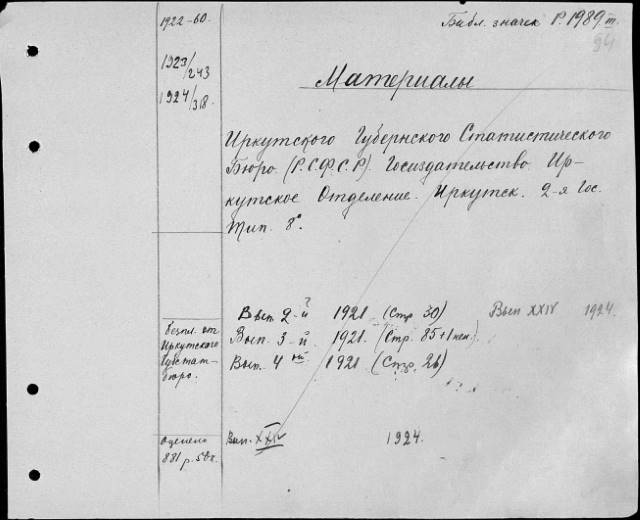 1922-60.
Библ. значек Р.1989 III.
94
1923/243
1924/318.
Материалы
Иркутского Губернского Статистического
Бюро (Р.С.Ф.С.Р.) Госиздательство Ир-
кутское Отделение. Иркутск. 2-я Гос.
Тип. 8°.
Вып. 2-й 1921 (Стр 30) Вып XXIV 1924.
безпл. от
Иркутского
Губстат-
бюро.
Вып. 3-й 1921. (Стр. 85+1 нен.)
Вып. 4 ый 1921 (Стр. 26)
оценено
881 р. 50к.
Вып. XXIV 1924.